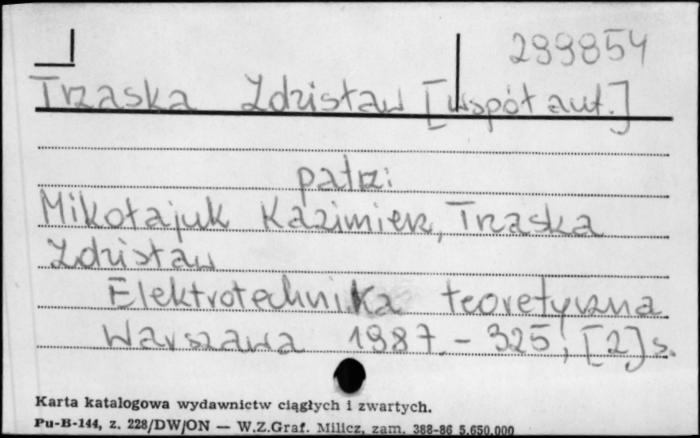 299854
Trzaska Zdzisław [współaut.]
patrz:
Mikołajuk Kazimierz, Trzaska
Zdzisław
Elektrotechnika teoretyczna
Warszawa 1987. - 325, [2] s.
Karta katalogowa wydawnictw ciągłych i zwartych.
Pu-B-144, z. 228/DW/ON — W.Z.Graf. Milicz, zam. 388-86 5.650.000